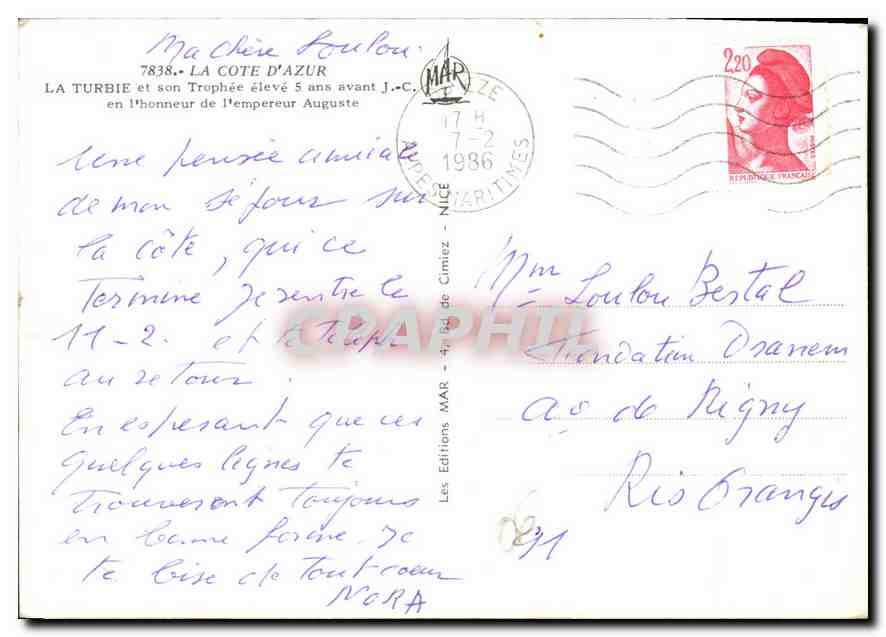 Ma chère Loulou.
7838.- LA COTE D'AZUR
LA TURBIE et son Trophée élevé 5 ans avant J.-C.
en l'honneur de l'empereur Auguste
MAR
17 H
7-2
1986
ALPES MARITIMES
2,20
REPUBLIQUE FRANCAISE
Une pensée amicale
de mon séjour sur
la côte, qui ce
Termine je rentre le
11-2. et te
au retour.
En esperant que ces
quelques lignes te
trouveront toujours
en bonne forme. Je
te bise de tout coeur
NORA
Les Editions MAR - 4, Bd de Cimiez - NICE
CPAPHIL
Mme Loulou Bestal
Fondation Dranem
de Rigny
Ris Orangis
91